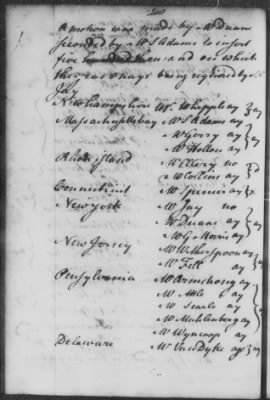 200
A motion was made by Mr Duane
seconded by Mr S Adams to insert
five hundred thousand on which
the yeas & nays being required by
Jay
Newhampshire Mr Whipple ay } ay
Massachusettsbay Mr S Adams ay
Mr Gerry ay } ay
Mr Holten ay
Rhode island Mr Ellery no
Mr Collins ay } d
Connecticut Mr Spencer ay } x
New york Mr Jay no
Mr Duane ay } ay
Mr G Morris ay
New Jersey Mr Witherspoon ay
Mr Fell ay } ay
Pensylvania Mr Armstrong ay
Mr Atlee ay
Mr Searle ay
Mr Muhlenberg ay } ay
Mr Wyncoop ay
Delaware Mr VanDyke ay } ay